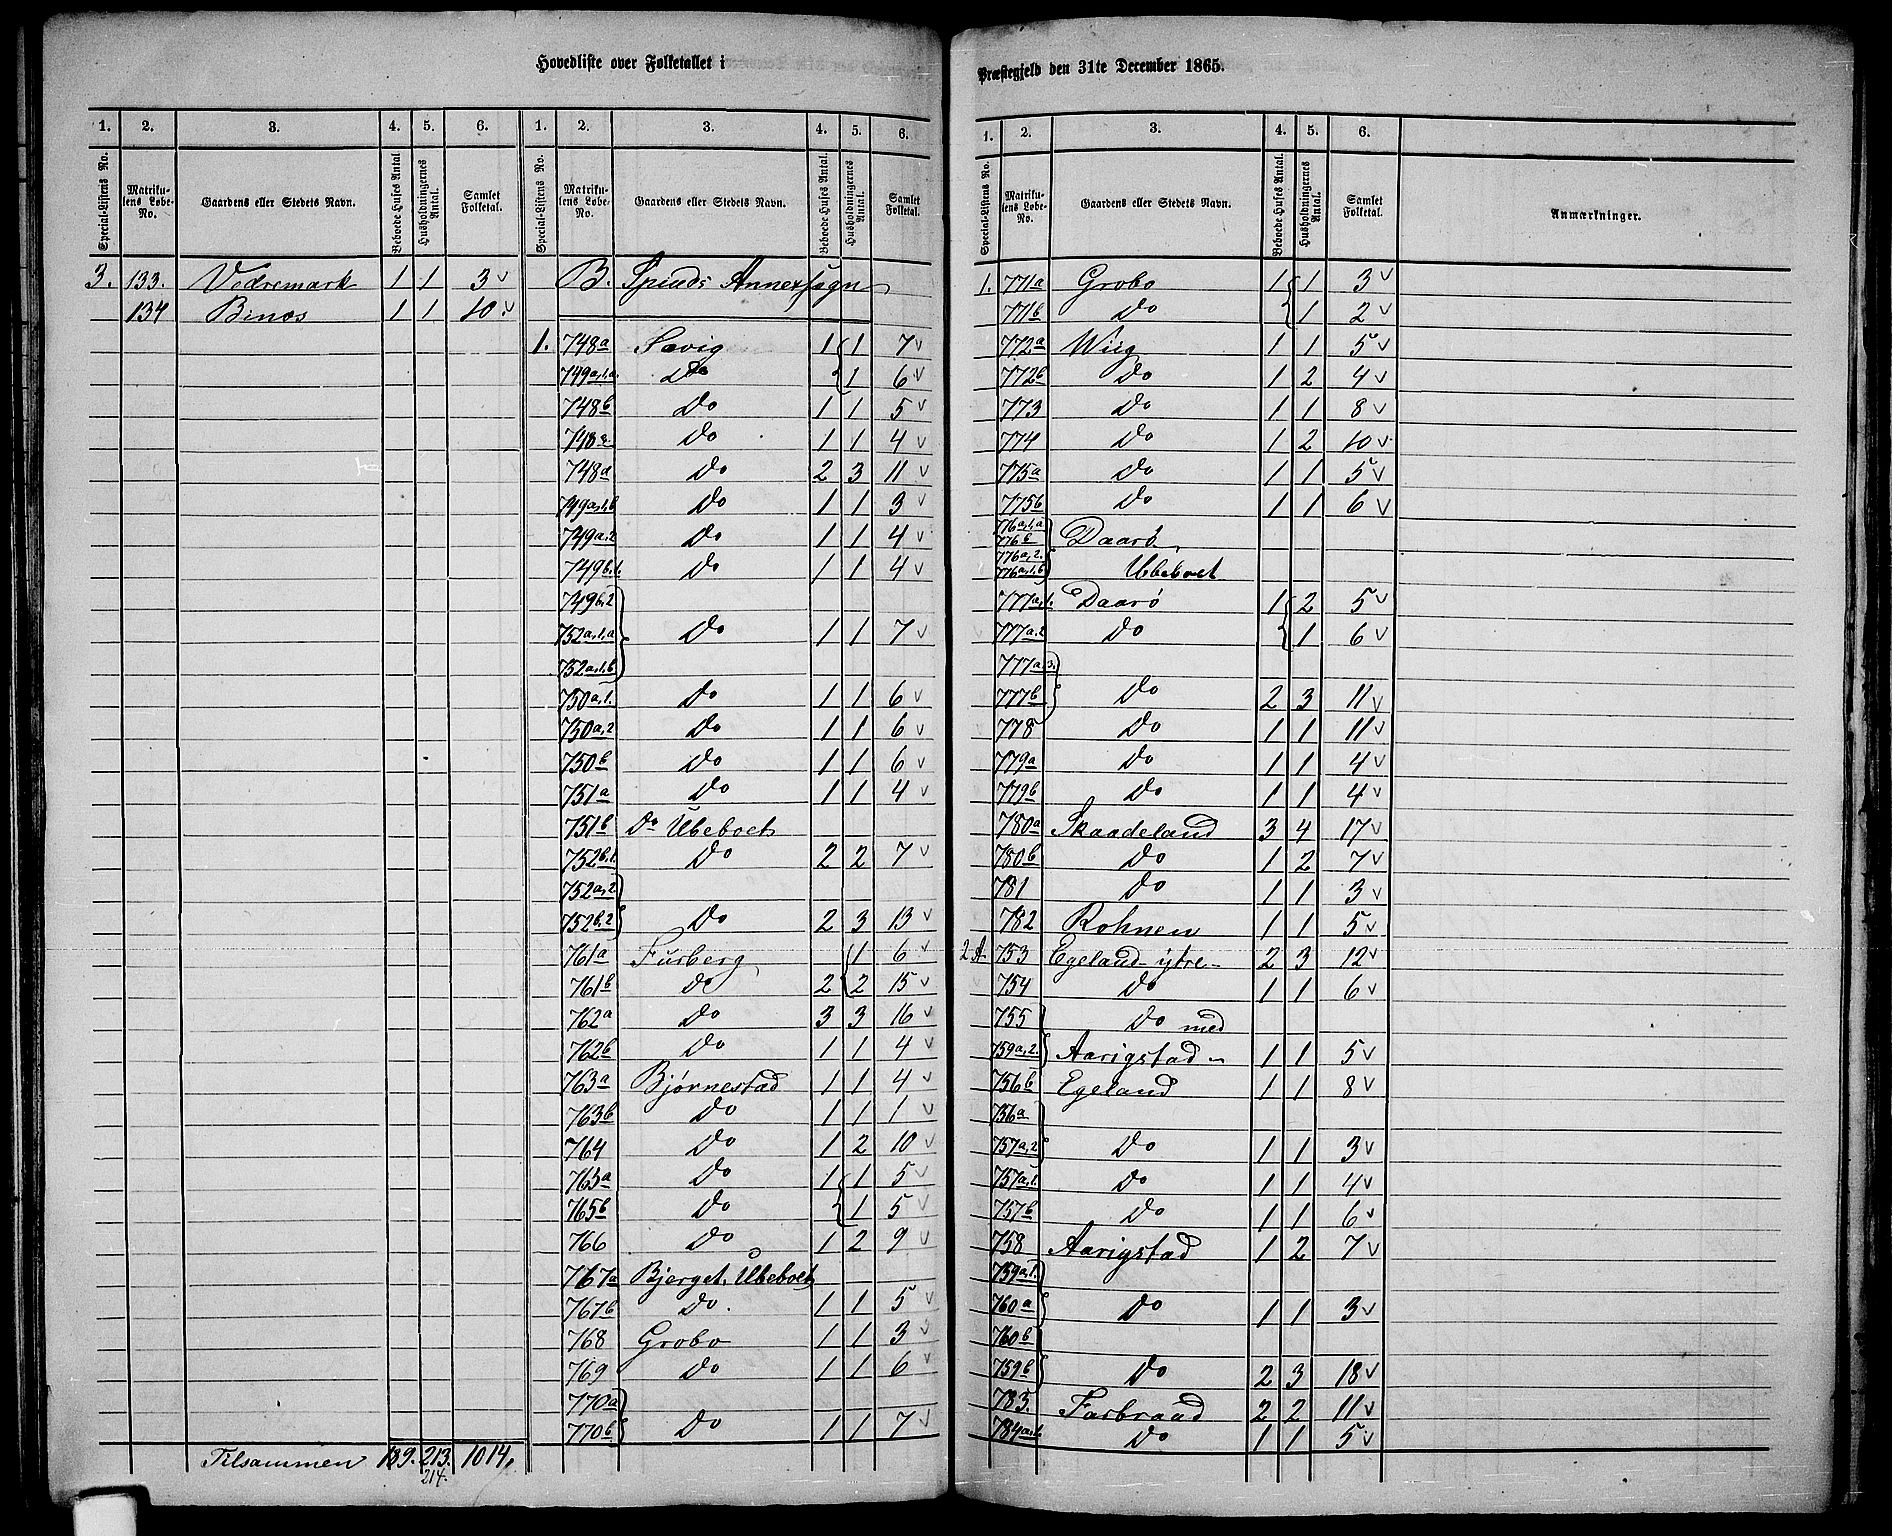 Hovedliste over Folketallet i
1. 2. 3. 4. 5. 6.
Special-Listens No. Matrikulens Løbe-No. Gaardens eller Stedets Navn. Beboede Huses Antal. Husholdningernes Antal. Samlet Folketal.
3. 133. Vedremark 1 1 3
134 Binæs 1 1 10
Tilsammen 139. 213. 1014.
214.
1. 2. 3. 4. 5. 6.
Special-Listens No. Matrikulens Løbe-No. Gaardens eller Stedets Navn. Beboede Huses Antal. Husholdningernes Antal. Samlet Folketal.
B. Spinds Annexsogn
1. 748a Sævig 1 1 7
749a,1,a Do 1 6
748b Do 1 1 5
748a Do 1 1 4
748a Do 2 3 11
749a,1,b Do 1 1 3
749a,2 Do 1 1 4
749b,1. Do 1 1 4
749b,2
752a,1,a Do 1 1 7
752a,1,b
750a,1. Do 1 1 6
750a,2 Do 1 1 6
750b Do 1 1 6
751a Do 1 1 4
751b Do Ubeboet
752b,1. Do 2 2 7
752a,2
752b,2 Do 2 3 13
761a Furberg 1 6
761b Do 2 2 15
762a Do 3 3 16
762b Do 1 1 4
763a Bjørnestad 1 1 4
763b Do 1 1 1
764 Do 1 2 10
765a Do 1 1 5
765b Do 1 5
766 Do 1 2 9
767a Bjerget, Ubeboet
767b Do. 1 1 5
768 Grobo 1 1 3
769 Do 1 1 6
770a
770b Do 1 1 7
Præstegjeld den 31te December 1865.
1. 2. 3. 4. 5. 6.
Special-Listens No. Matrikulens Løbe-No. Gaardens eller Stedets Navn. Beboede Huses Antal. Husholdningernes Antal. Samlet Folketal. Anmærkninger.
1. 771a Grobo 1 1 3
771b Do 1 2
772a Wiig 1 1 5
772b Do 1 2 4
773 Do 1 1 8
774 Do 1 2 10
775a Do 1 1 5
775b Do 1 1 6
776a,1,a
776b Daarø
776a,2.
776a,1,b Ubeboet
777a,1. Daarø 1 2 5
777a,2 Do 1 6
777a,3.
777b Do 2 3 11
778 Do 1 1 11
779a Do 1 1 4
779b Do 1 1 4
780a Skaadeland 3 4 17
780b Do 1 2 7
781 Do 1 1 3
782 Rohnen 1 1 5
2 A 753 Egeland ytre 2 3 12
754 Do 1 1 6
755 Do med
759a,2. Aarigstad 1 1 5
756b Egeland 1 1 8
756a
757a,2 Do 1 1 3
757a,1. Do 1 1 4
757b Do 1 1 6
758 Aarigstad 1 2 7
759a,1.
760a Do 1 1 3
760b
759b Do 2 3 18
783. Farbraad 2 2 11
784a,1. Do 1 1 5